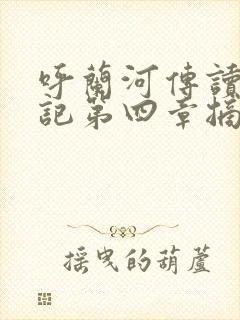 呼蘭河傳讀
記第四章摘
摇曳的葫蘆